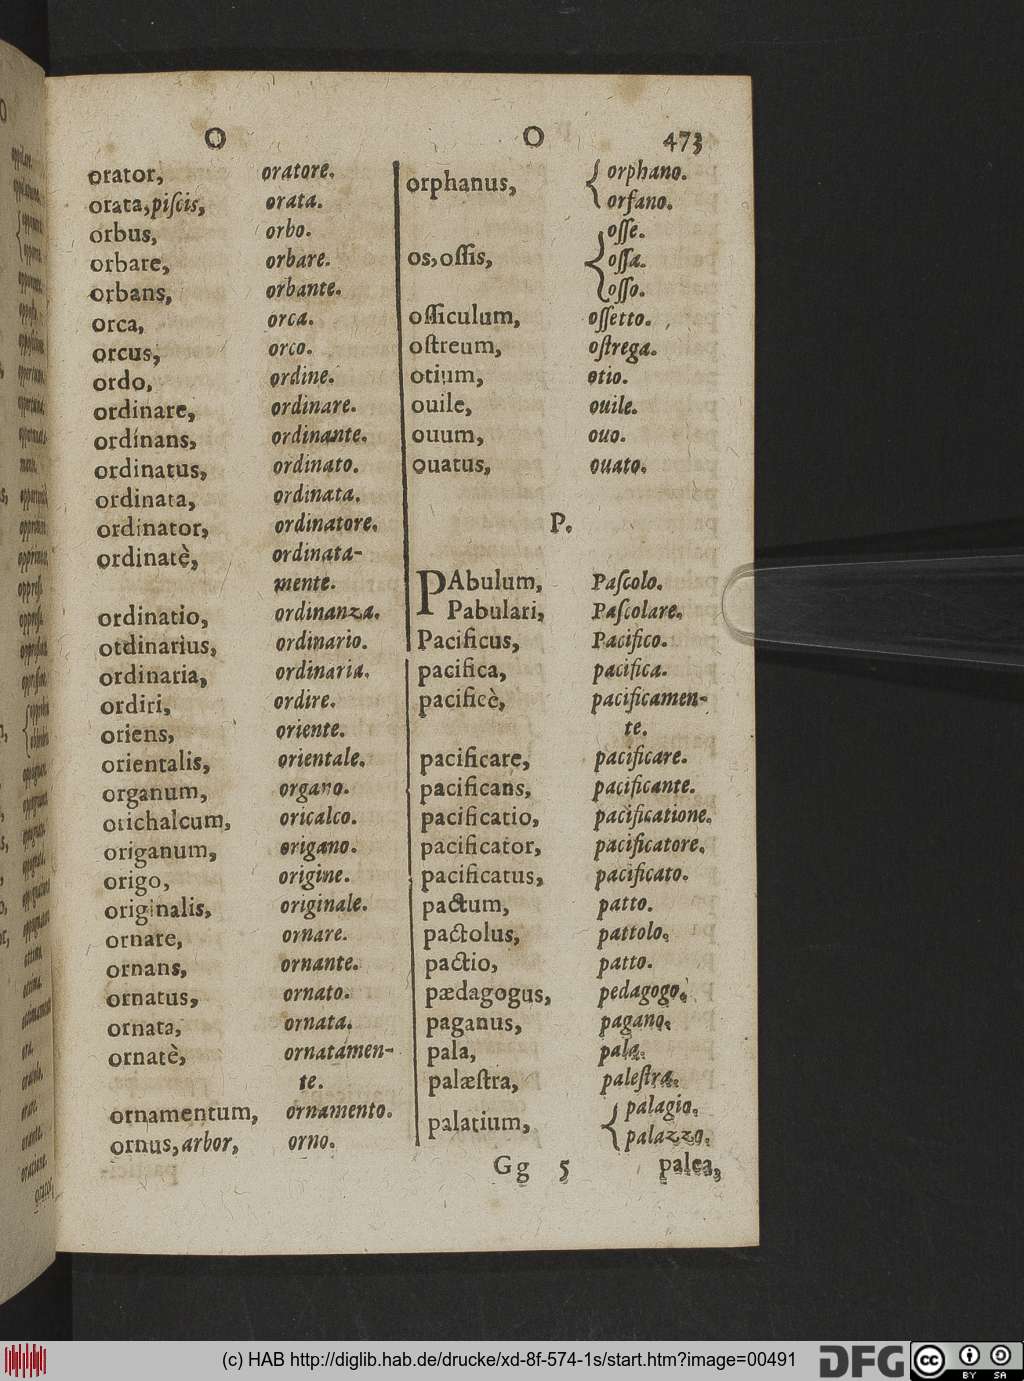 O O 473
orator, oratore.
orata, piſcis, orata.
orbus, orbo.
orbare, orbare.
orbans, orbante.
orca, orca.
orcus, orco.
ordo, ordine.
ordinare, ordinare.
ordinans, ordinante.
ordinatus, ordinato.
ordinata, ordinata.
ordinator, ordinatore.
ordinatè, ordinata-
mente.
ordinatio, ordinanza.
otdinarius, ordinario.
ordinaria, ordinaria.
ordiri, ordire.
oriens, oriente.
orientalis, orientale.
organum, organo.
orichalcum, oricalco.
origanum, origano.
origo, origine.
originalis, originale.
ornare, ornare.
ornans, ornante.
ornatus, ornato.
ornata, ornata.
ornatè, ornatamen-
te.
ornamentum, ornamento.
ornus, arbor, orno.
orphanus, orphano.
orfano.
oſſe.
os, oſſis, oſſa.
oſſo.
oſſiculum, oſſetto.
oſtreum, oſtrega.
otium, otio.
ouile, ouile.
ouum, ouo.
ouatus, ouato.
P.
PAbulum, Paſcolo.
Pabulari, Paſcolare.
Pacificus, Pacifico.
pacifica, pacifica.
pacificè, pacificamen-
te.
pacificare, pacificare.
pacificans, pacificante.
pacificatio, pacificatione.
pacificator, pacificatore.
pacificatus, pacificato.
pactum, patto.
pactolus, pattolo.
pactio, patto.
pædagogus, pedagogo.
paganus, pagano.
pala, pala.
palæſtra, paleſtra.
palatium, palagio.
palazzo.
Gg 5 palea,
(c) HAB http://diglib.hab.de/drucke/xd-8f-574-1s/start.htm?image=00491
DFG
cc BY SA